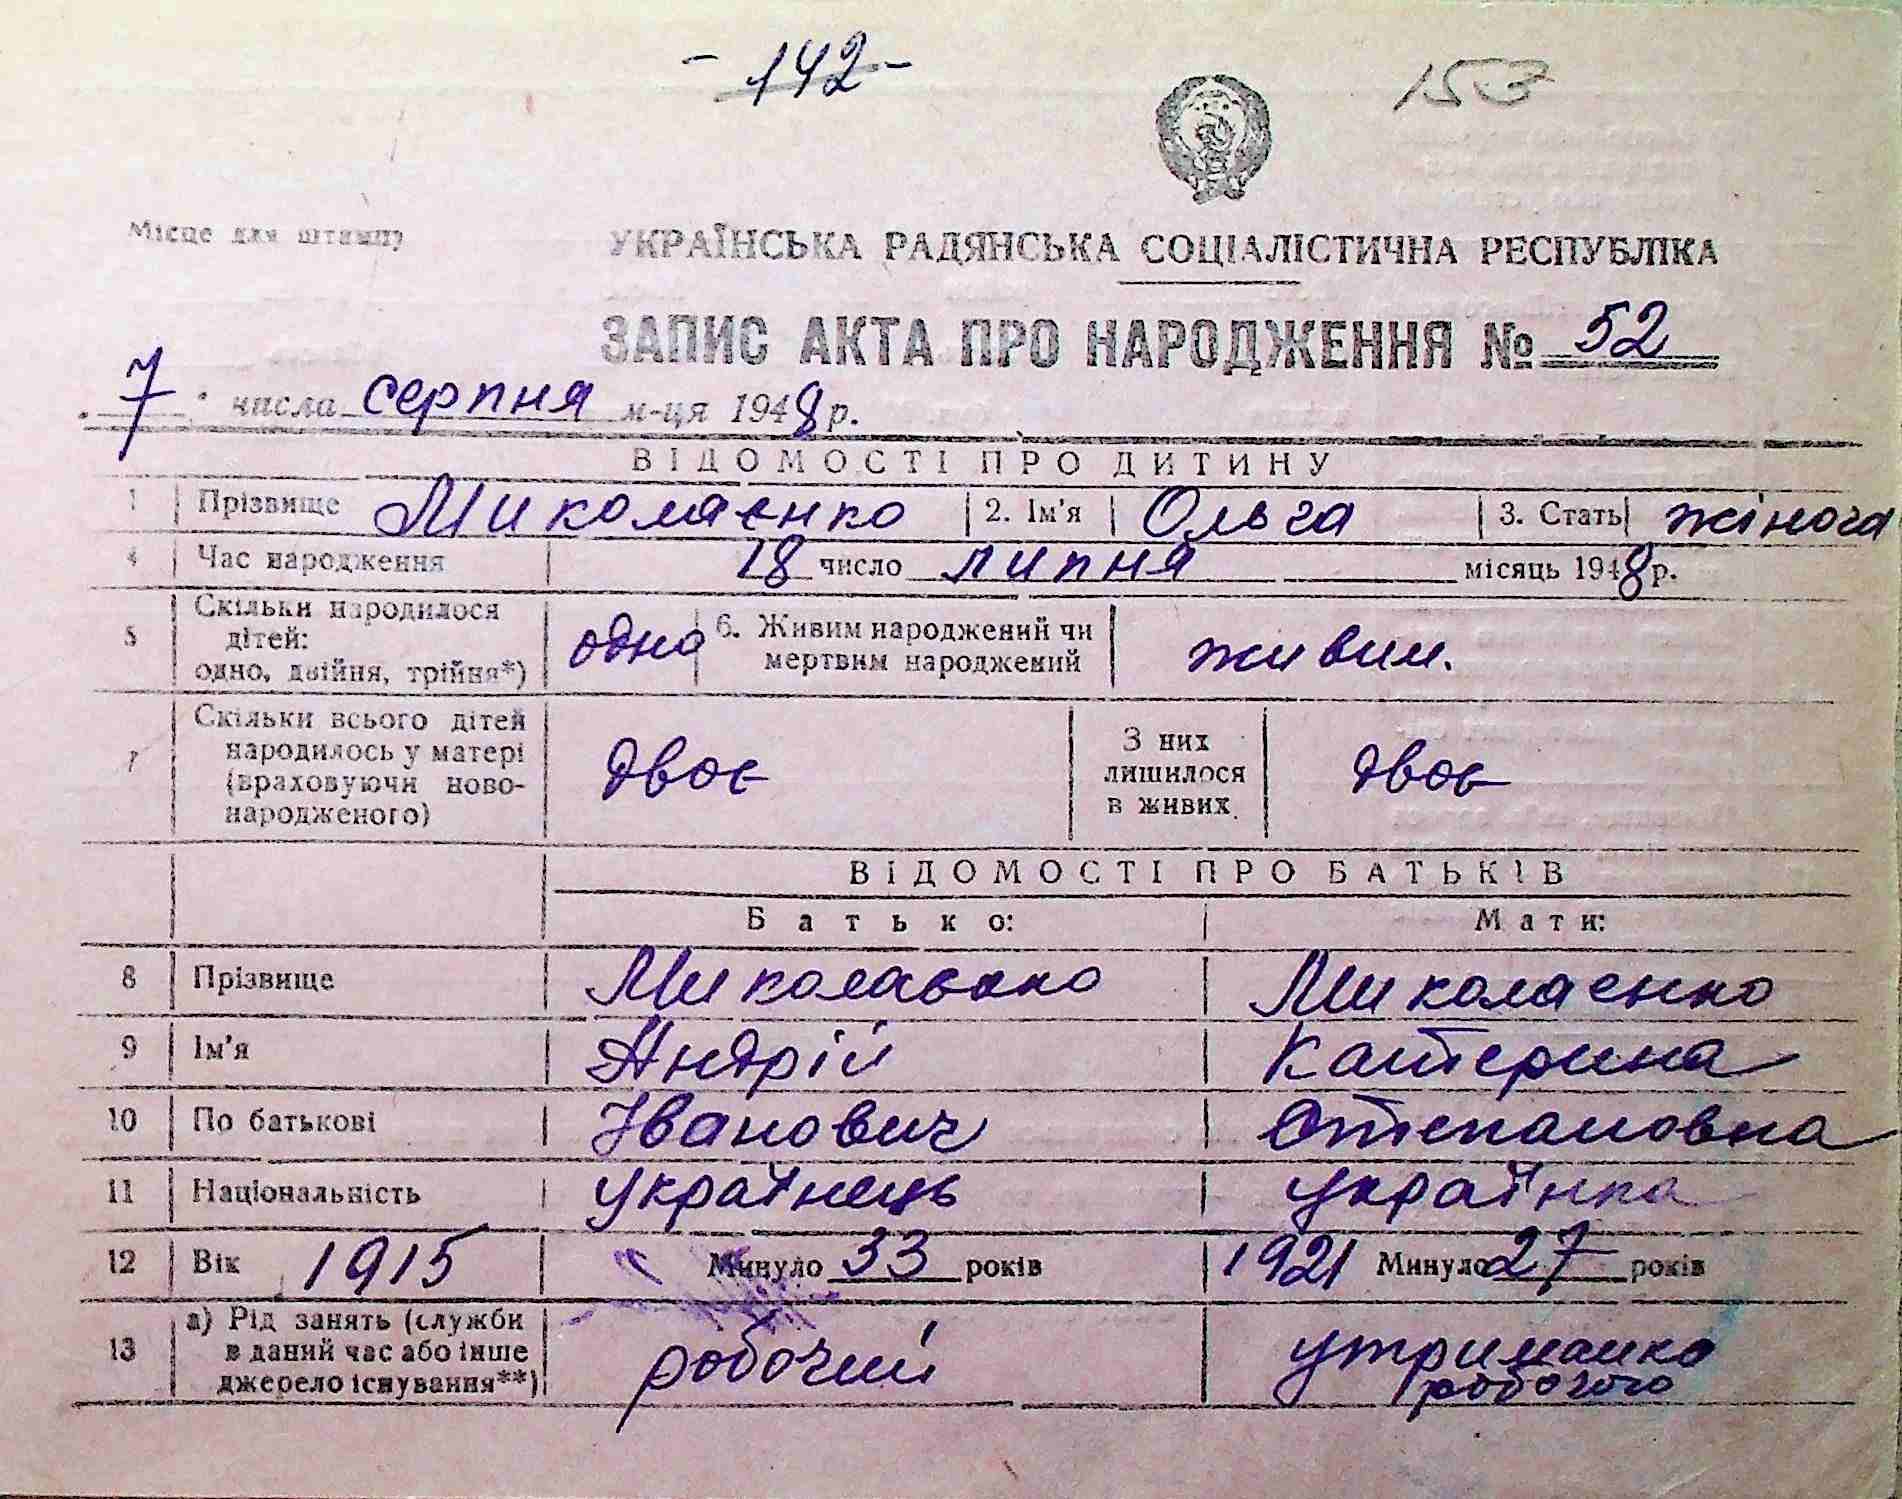 - 142 -
153
Місце для штампу
УКРАЇНСЬКА РАДЯНСЬКА СОЦІАЛІСТИЧНА РЕСПУБЛІКА
ЗАПИС АКТА ПРО НАРОДЖЕННЯ № 52
7 числа серпня м-ця 1948 р.
ВІДОМОСТІ ПРО ДИТИНУ
1 Прізвище Миколаєнко 2. Ім'я Ольга 3. Стать жіноча
4 Час народження 18 число липня місяць 1948 р.
5 Скільки народилося дітей: одно, двійня, трійня*) одно 6. Живим народжений чи мертвим народжений живим.
7 Скільки всього дітей народилось у матері (враховуючи новонародженого) двоє З них лишилося в живих. двоє
ВІДОМОСТІ ПРО БАТЬКІВ
Батько: Мати:
8 Прізвище Миколаєнко Миколаєнко
9 Ім'я Андрій Катерина
10 По батькові Іванович Степановна
11 Національність українець українка
12 Вік 1915 Минуло 33 років 1921 Минуло 27 років
13 а) Рід занять (служби в даний час або інше джерело існування**) робочий утриманка робочого